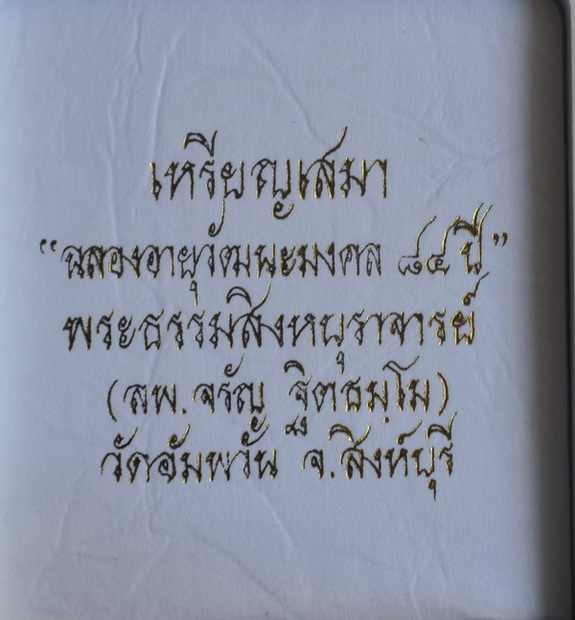 เหรียญเสมา
“ฉลองอายุวัฒนะมงคล ๘๔ ปี”
พระธรรมสิงหบุราจารย์
(ลพ.จรัญ ฐิตธมฺโม)
วัดอัมพวัน จ.สิงห์บุรี